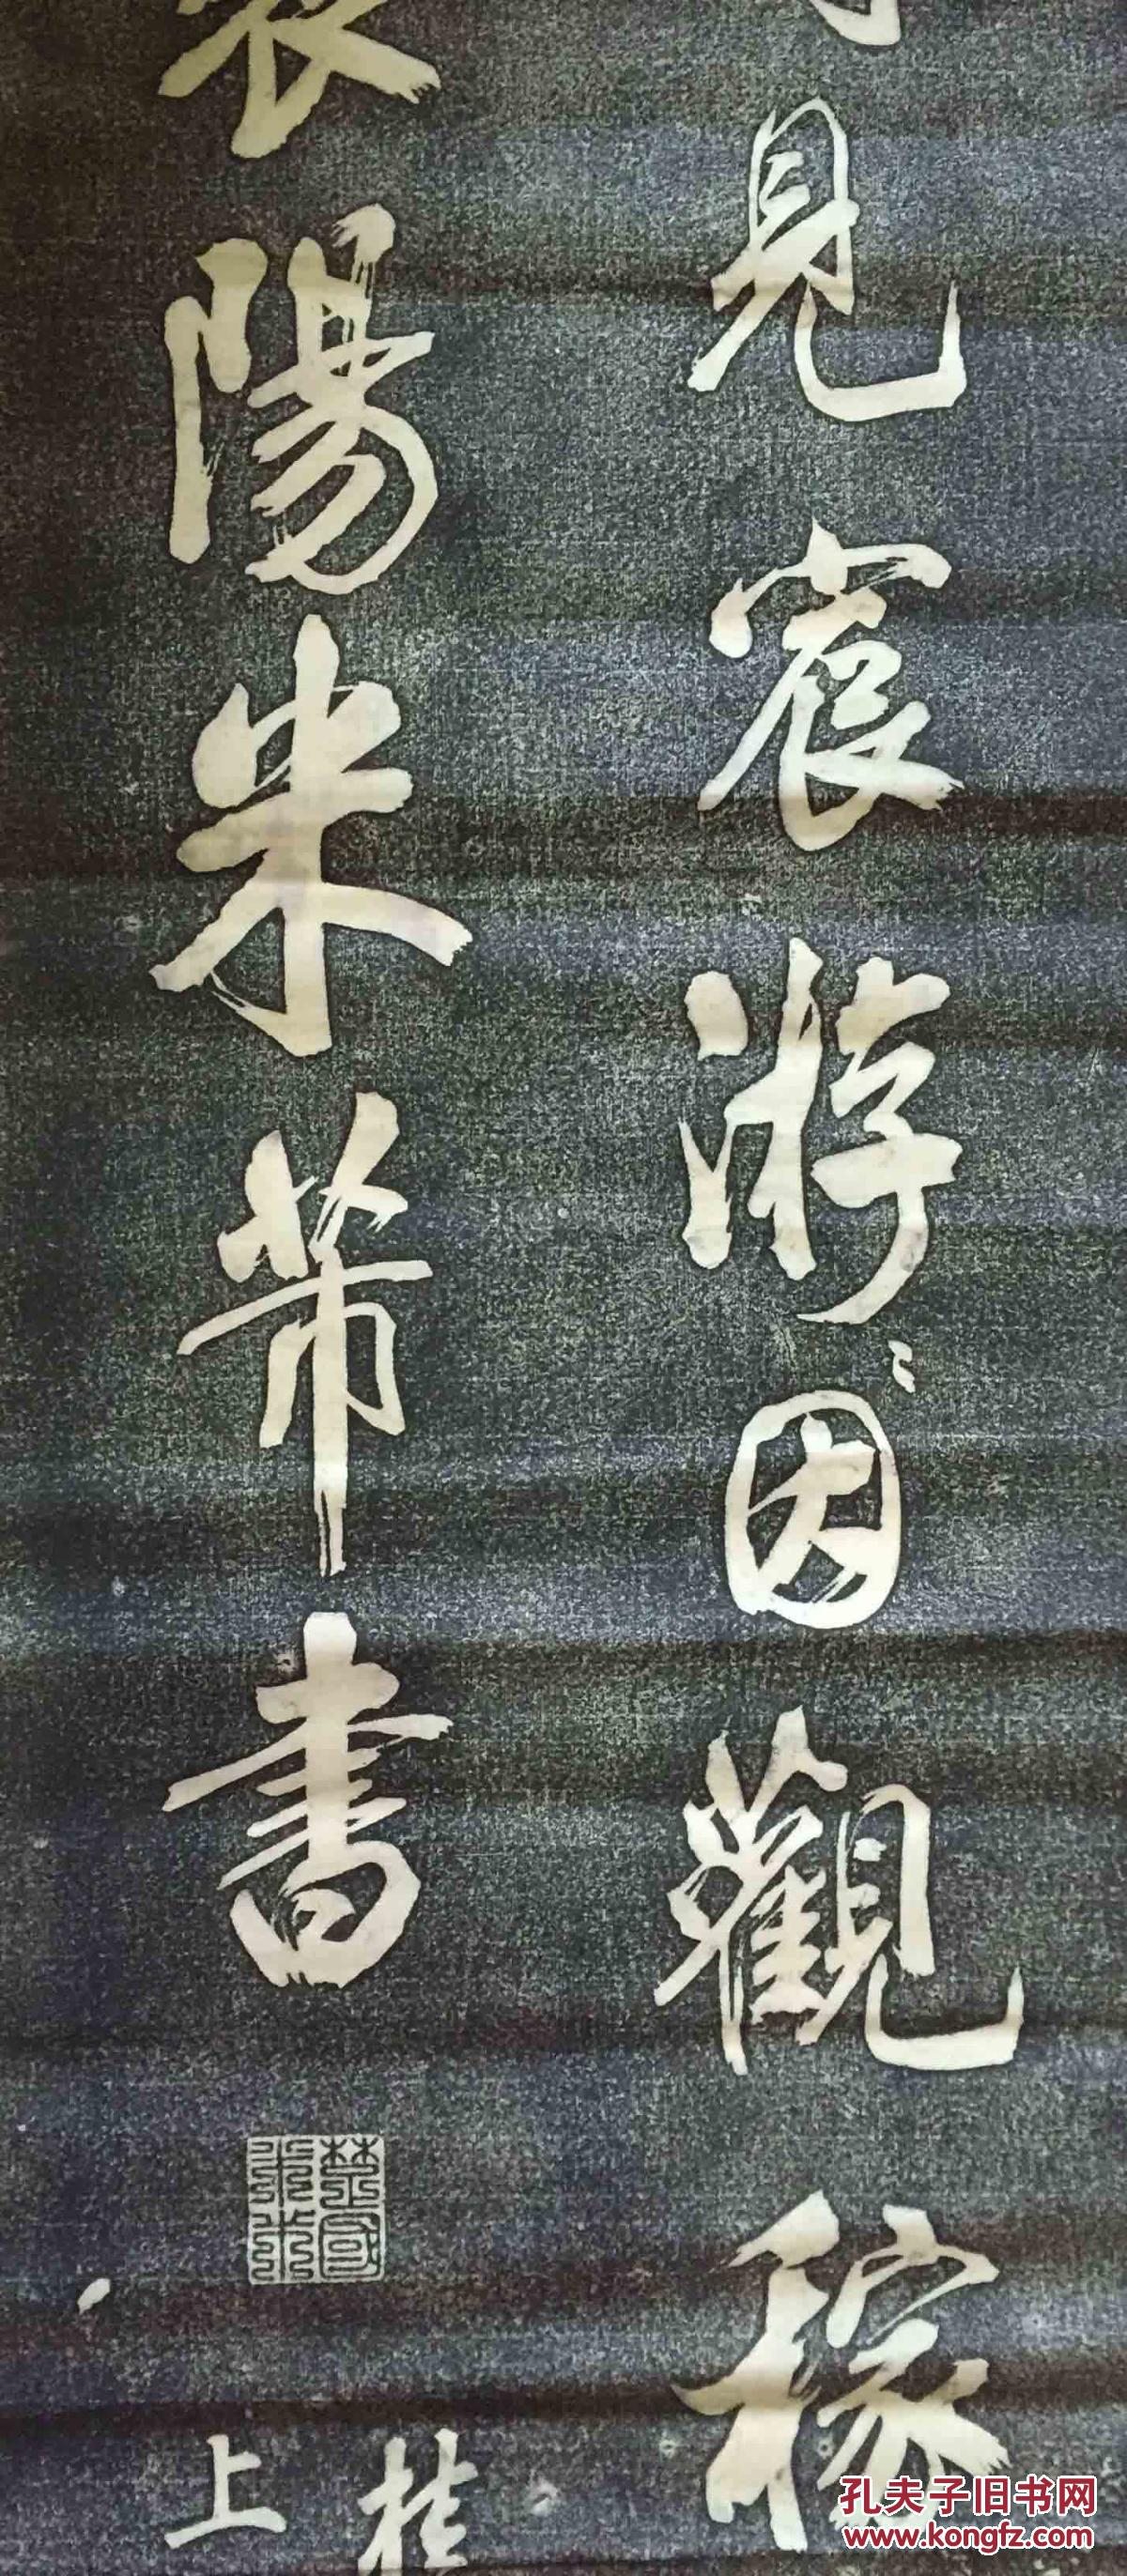 見宸游〻因觀稼
襄陽米芾書
楚國米芾
桂
上
孔夫子旧书网
www.kongfz.com